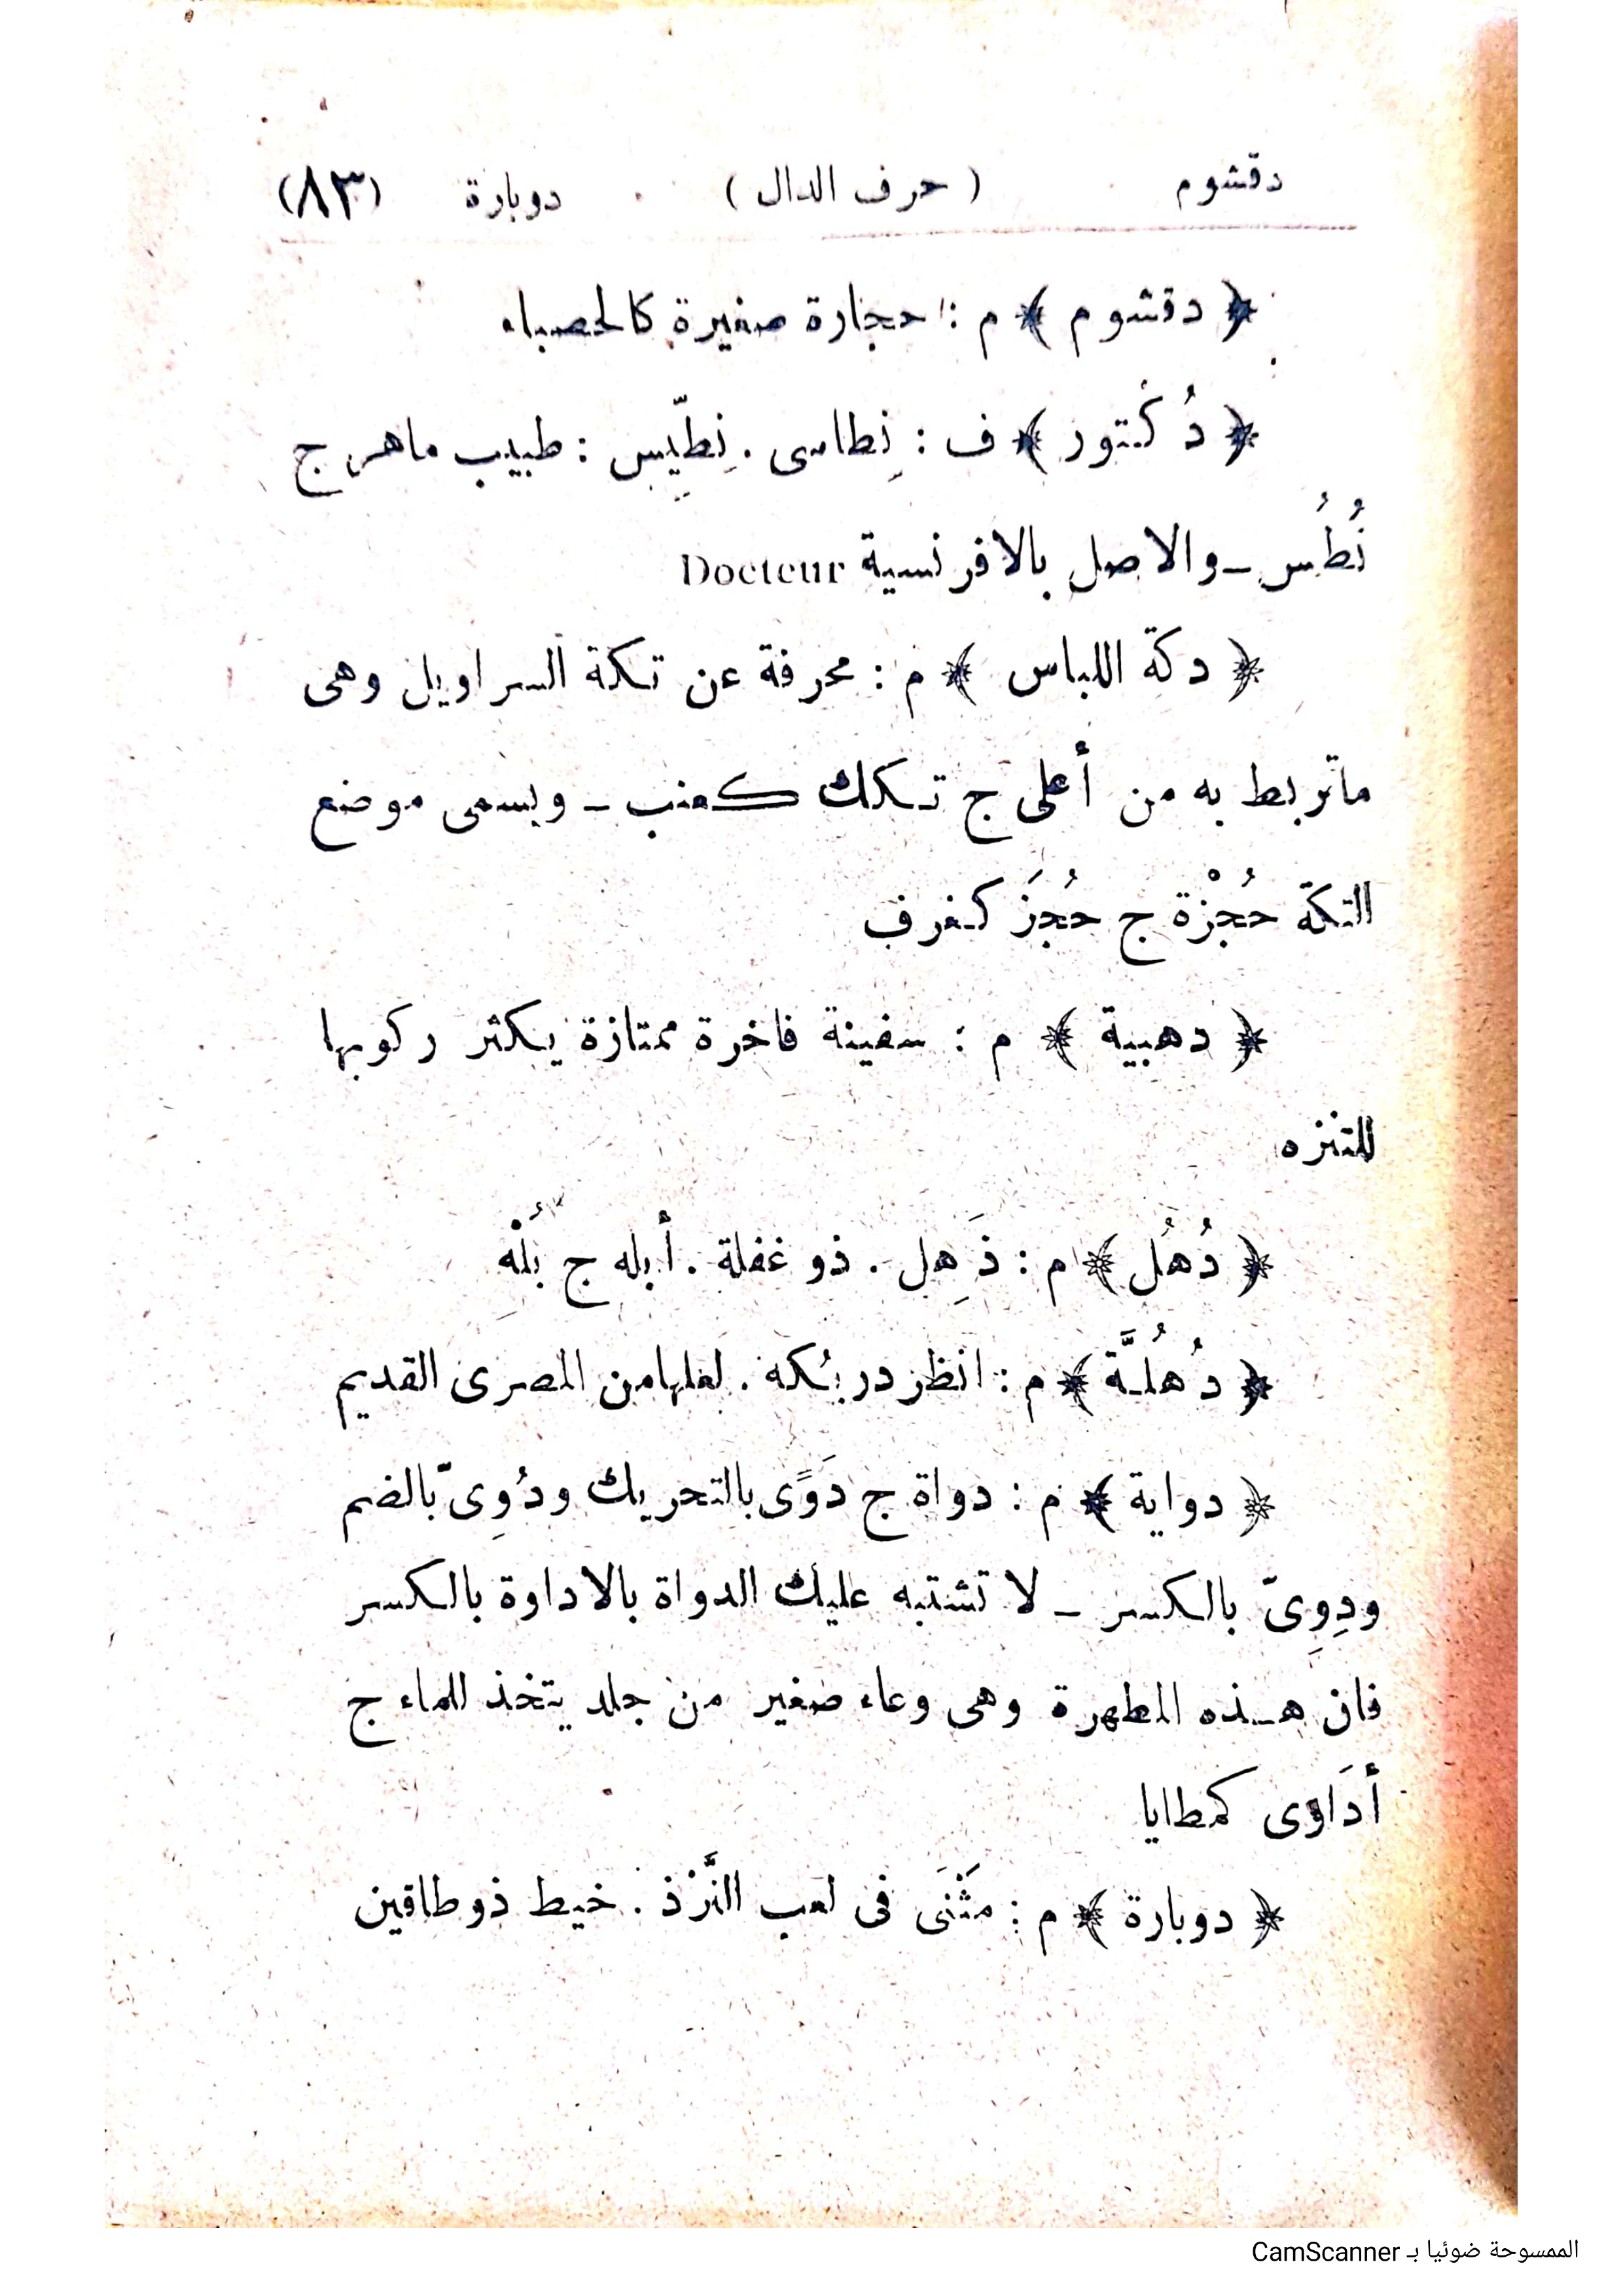 دقشوم ( حرف الدال ) دوبارة (٨٣)
﴿ دقشوم ﴾ م : حجارة صغيرة كالحصباء
﴿ دُكْتور ﴾ ف : نِطاسى . نِطِّيس : طبيب ماهر ج
نُطُس – والاصل بالافرنسية Docteur
﴿ دكة اللباس ﴾ م : محرفة عن تكة السراويل وهى
ماتربط به من أعلى ج تكك كعنب – ويسمى موضع
التكة حُجْزة ج حُجَز كغرف
﴿ دهبية ﴾ م : سفينة فاخرة ممتازة يكثر ركوبها
للتنزه
﴿ دُهُل ﴾ م : ذَهِل . ذو غفلة . أبله ج بُلْه
﴿ دُهُلَّة ﴾ م : انظر دربُكه . لعلها من المصرى القديم
﴿ دواية ﴾ م : دواة ج دَوًى بالتحريك ودُوِىّ بالضم
ودِوِىّ بالكسر – لا تشتبه عليك الدواة بالاداوة بالكسر
فان هذه المطهرة وهى وعاء صغير من جلد يتخذ للماء ج
أدَاوى كمطايا
﴿ دوبارة ﴾ م : مَثْنَى فى لعب النَّرْد . خيط ذو طاقين
الممسوحة ضوئيا بـ CamScanner